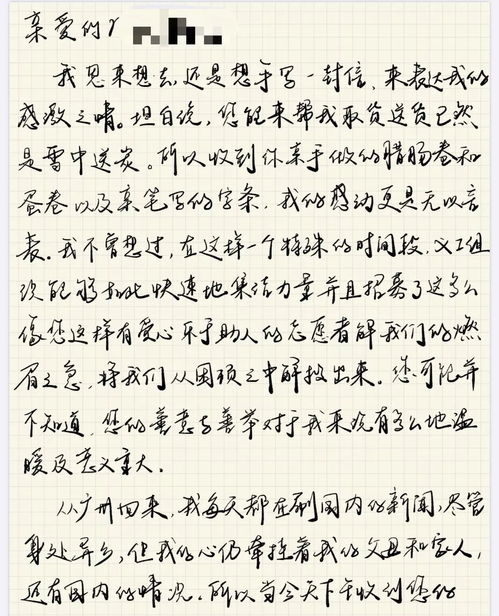 亲爱的
我思来想去,还是想手写一封信,来表达我的
感激之情。坦白说,您能来帮我取货送货已然
是雪中送炭。所以收到你亲手做的腊肠卷和
蛋卷以及亲笔写的字条,我的感动更是无以言
表。我不曾想过,在这样一个特殊的时间段,义工组
织能够如此快速地集结力量并且招募了这么么
像您这样有爱心乐于助人的志愿者解我们的燃
眉之急,将我们从困顿之中解救出来。您可能并
不知道,您的善意与善举对于我来说有多么地温
暖及意义重大。
从广州回来,我每天都在刷国内的新闻,尽管
身处异乡,但我的心仍牵挂着我的父母和家人,
还有国内的情况。所以当今天下午收到您的